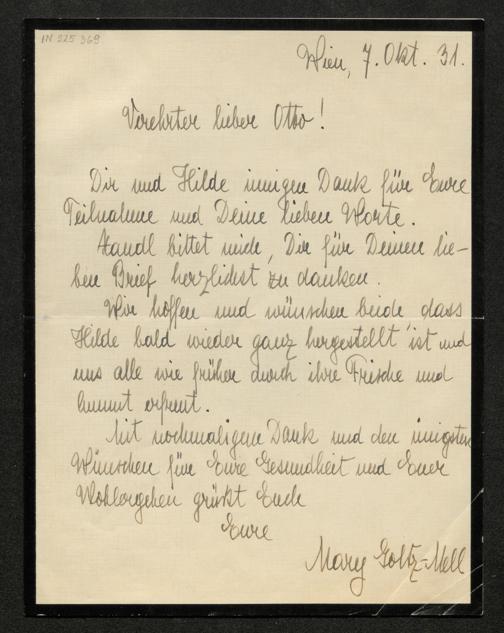 IN 225 369
Wien, 7. Okt. 31.
Verehrter lieber Otto!
Dir und Hilde innigen Dank für Eure
Teilnahme und Deine lieben Worte.
bittet mich, Dir für Deinen lie-
ben Brief herzlichst zu danken.
Wir hoffen und wünschen beide dass
Hilde bald wieder ganz hergestellt ist und
uns alle wie früher durch ihre Frische und
Anmut erfreut.
Mit nochmaligem Dank und den innigsten
Wünschen für Eure Gesundheit und Euer
Wohlergehen grüßt Euch
Eure
Mary Goltz-Mell